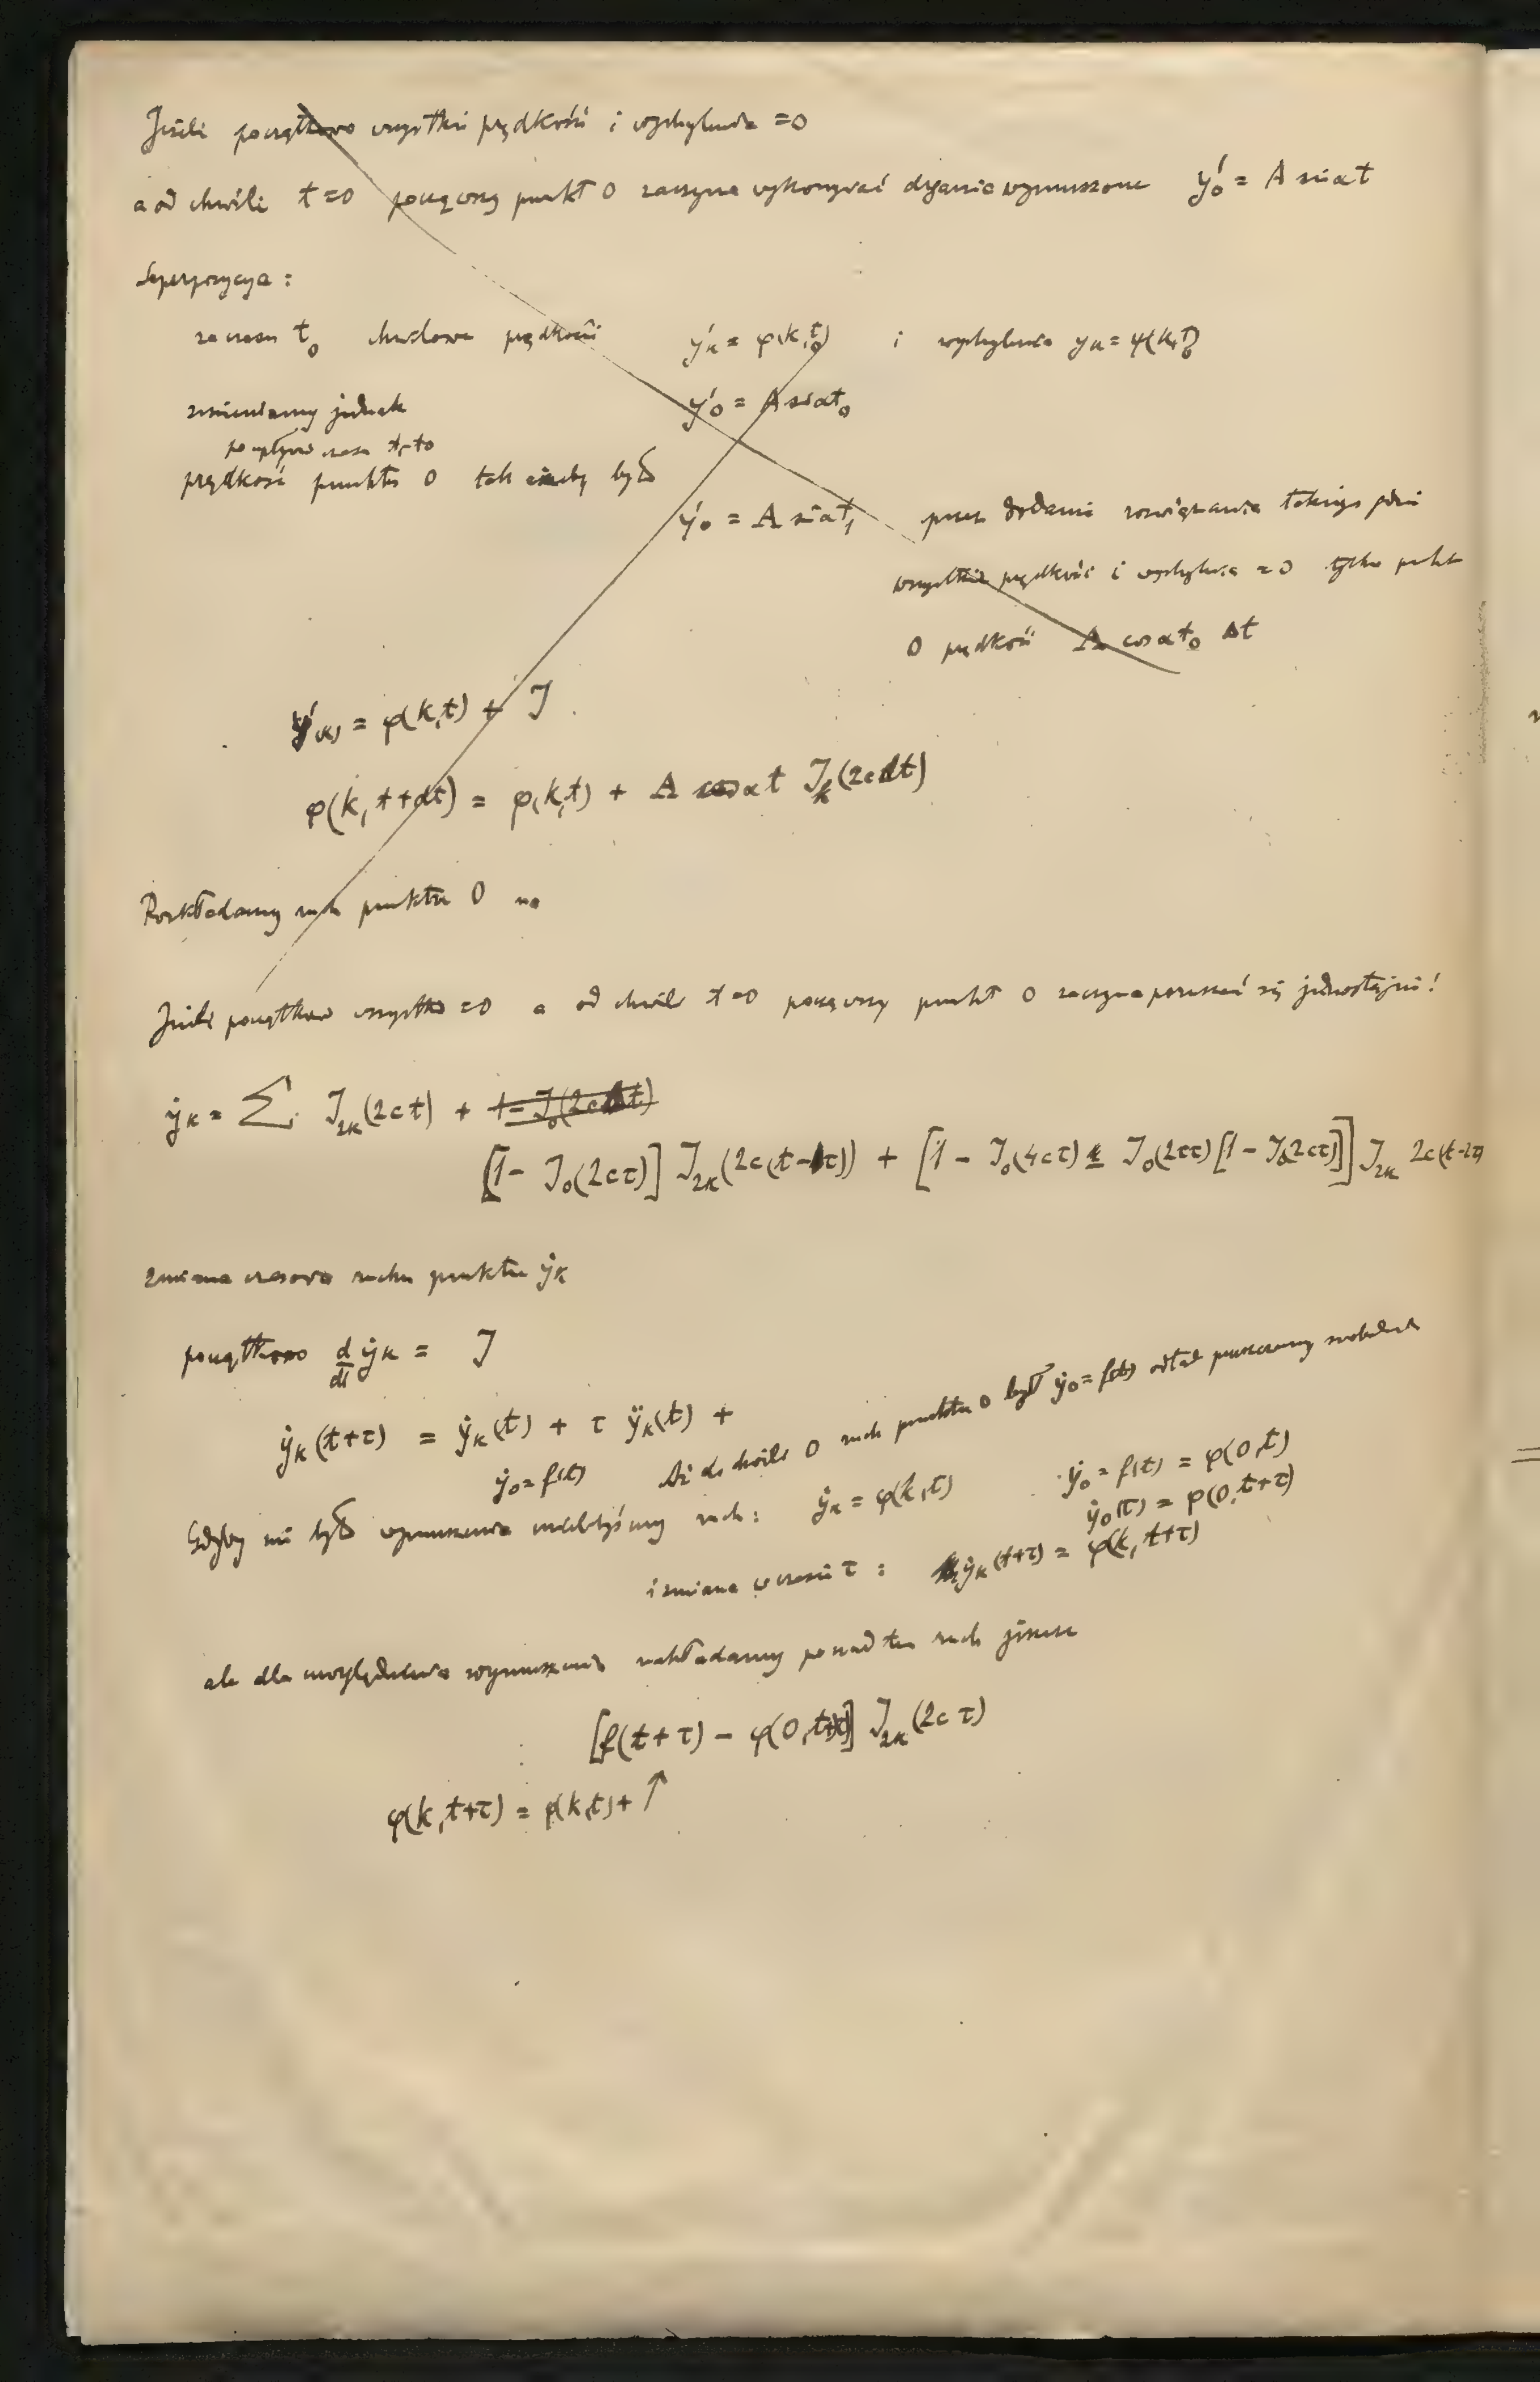 Jeżeli początkowo wszystkie prędkości i wychylenia = 0
a od chwili t = 0 począwszy punkt 0 zaczyna wykonywać drgania wymuszone y'₀ = A sin αt
Superpozycya :
za czasu t₀ chwilowe prędkości y'ₖ = φ(k, t₀) i wychylenia yₖ = ψ(k, t₀)
y'₀ = A sin αt₀
zmieniamy jednak
po upływie czasu t₁-t₀
prędkość punktu 0 tak ażeby był
y'₀ = A sin αt₁ przez dodanie rozwiązania takiego gdzie
wszystkie prędkości i wychylenia = 0 tylko punkt
0 prędkość A cos αt₀ Δt
y'₍ₖ₎ = φ(k,t) + J
φ(k, t+dt) = φ(k,t) + A cos αt Jₖ(2cdt)
Rozkładamy ruch punktu 0 na
Jeżeli początkowo wszystko = 0 a od chwili t = 0 począwszy punkt 0 zaczyna poruszać się jednostajnie!
ẏₖ = Σ J₂ₖ(2ct) + 1 - J₀(2cΔt)
[1 - J₀(2cτ)] J₂ₖ(2c(t-τ)) + [1 - J₀(4cτ) ± J₀(2cτ)[1 - J₀(2cτ)]] J₂ₖ 2c(t-2τ)
zmiana czasowa ruchu punktu ẏₖ
początkowo d/dt ẏₖ = J
ẏₖ(t+τ) = ẏₖ(t) + τ ÿₖ(t) +
ẏ₀ = f(t) Aż do chwili 0 ruch punktu 0 był ẏ₀ = f(t) odtąd puszczamy swobodnie
Gdyby nie było wymuszenia mielibyśmy ruch : ẏₖ = φ(k,t) ẏ₀ = f(t) = φ(0,t)
ẏ₀(τ) = φ(0, t+τ)
i zmiana w czasie τ : ẏₖ(t+τ) = φ(k, t+τ)
ale dla uwzględnienia wymuszenia nakładamy ponad ten ruch jeszcze
[f(t+τ) - φ(0, t+τ)] J₂ₖ(2cτ)
φ(k, t+τ) = φ(k,t) + ↑